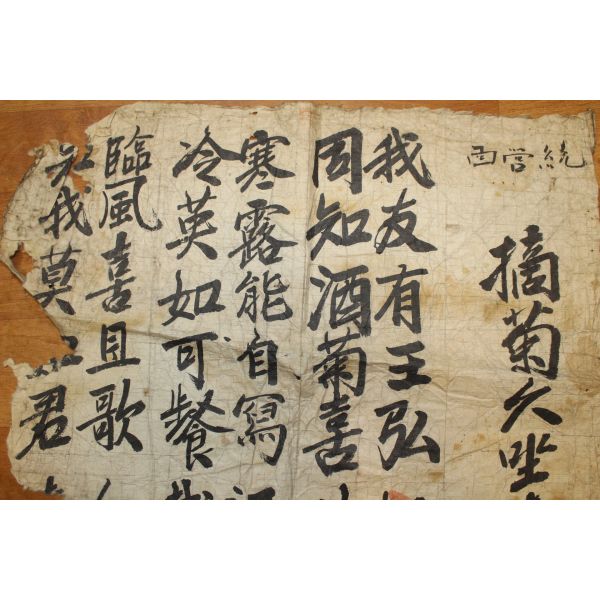 統營
摘菊久坐
我友有王弘
知酒菊喜
寒露能自寫
冷英如可餐
臨風喜且歌
我莫君